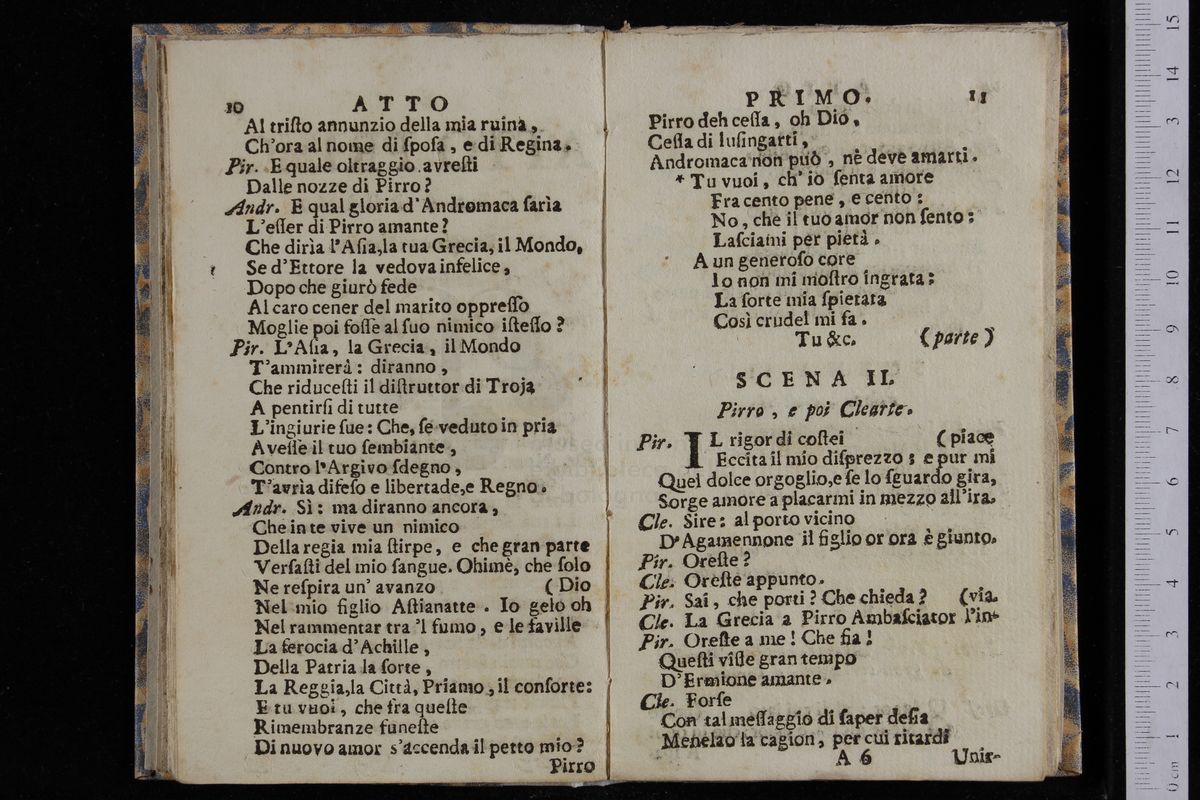 10 ATTO
Al triſto annunzio della mia ruina,
Ch'ora al nome di ſpoſa, e di Regina.
Pir. E quale oltraggio avreſti
Dalle nozze di Pirro?
Andr. E qual gloria d'Andromaca ſarìa
L'eſſer di Pirro amante?
Che dirìa l'Aſia, la tua Grecia, il Mondo,
Se d'Ettore la vedova infelice,
Dopo che giurò fede
Al caro cener del marito oppreſſo
Moglie poi foſſe al ſuo nimico iſteſſo?
Pir. L'Aſia, la Grecia, il Mondo
T'ammirerà: diranno,
Che riduceſti il diſtruttor di Troja
A pentirſi di tutte
L'ingiurie ſue: Che, ſe veduto in pria
Aveſſe il tuo ſembiante,
Contro l'Argivo ſdegno,
T'avrìa difeſo e libertade, e Regno.
Andr. Sì: ma diranno ancora,
Che in te vive un nimico
Della regia mia ſtirpe, e che gran parte
Verſaſti del mio ſangue. Ohimè, che ſolo
Ne reſpira un' avanzo (Dio
Nel mio figlio Aſtianatte. Io gelo oh
Nel rammentar tra 'l fumo, e le faville
La ferocia d'Achille,
Della Patria la ſorte,
La Reggia, la Città, Priamo, il conſorte:
E tu vuoi, che fra queſte
Rimembranze funeſte
Di nuovo amor s'accenda il petto mio?
Pirro
PRIMO. 11
Pirro deh ceſſa, oh Dio,
Ceſſa di luſingarti,
Andromaca non può, nè deve amarti.
* Tu vuoi, ch' io ſenta amore
Fra cento pene, e cento:
No, che il tuo amor non ſento:
Laſciami per pietà.
A un generoſo core
Io non mi moſtro ingrata:
La ſorte mia ſpietata
Così crudel mi fa.
Tu &c. (parte)
SCENA II.
Pirro, e poi Clearte.
Pir. IL rigor di coſtei (piace
Eccita il mio diſprezzo; e pur mi
Quel dolce orgoglio, e ſe lo ſguardo gira,
Sorge amore a placarmi in mezzo all'ira.
Cle. Sire: al porto vicino
D'Agamennone il figlio or ora è giunto.
Pir. Oreſte?
Cle. Oreſte appunto.
Pir. Sai, che porti? Che chieda? (via.
Cle. La Grecia a Pirro Ambaſciator l'in-
Pir. Oreſte a me! Che fia!
Queſti viſſe gran tempo
D'Ermione amante.
Cle. Forſe
Con tal meſſaggio di ſaper deſia
Menelao la cagion, per cui ritardi
A 6 Unir-